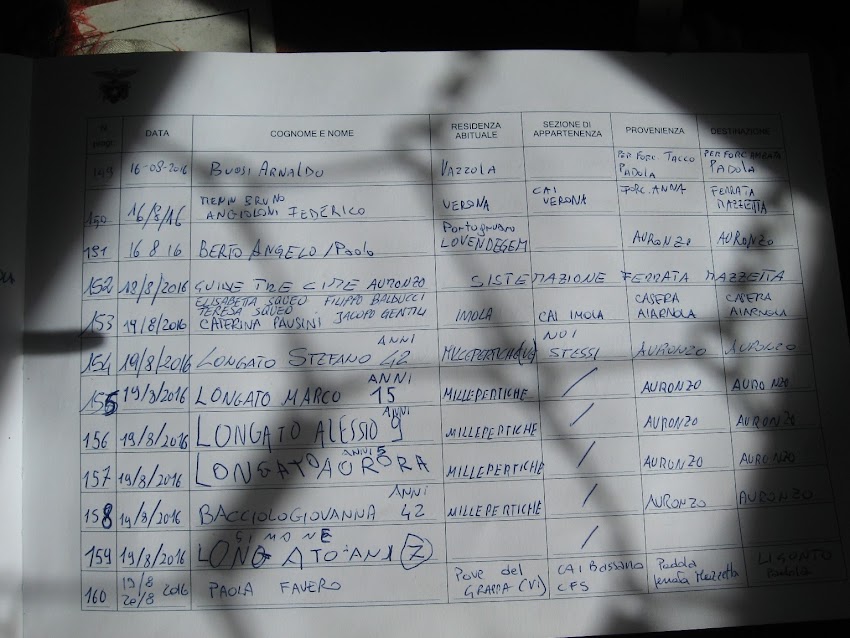 N. prog. DATA COGNOME E NOME RESIDENZA ABITUALE SEZIONE DI APPARTENENZA PROVENIENZA DESTINAZIONE
149 16-08-2016 BUOSI ARNALDO VAZZOLA PER FORC. TACCO PADOLA PER FORC. PADOLA
150 16/8/16 BRUNO ANGIOLONI FEDERICO VERONA CAI VERONA FORC. ANNA FERRATA MAZZETTA
151 16 8 16 BERTO ANGELO / Paolo Portogruaro LOVENDEGEM AURONZO AURONZO
152 12/8/2016 GUIDE TRE CIME AURONZO SISTEMAZIONE FERRATA MAZZETTA
ELISABETTA SQUEO FILIPPO BALDUCCI
TERESA SQUEO
153 19/8/2016 CATERINA PAUSINI JACOPO GENTILI IMOLA CAI IMOLA CASERA AIARNOLA CASERA AIARNOLA
154 19/8/2016 LONGATO STEFANO ANNI 42 MILLEPERTICHE NOI STESSI AURONZO AURONZO
155 19/8/2016 LONGATO MARCO ANNI 15 MILLEPERTICHE / AURONZO AURONZO
156 19/8/2016 LONGATO ALESSIO ANNI 9 MILLEPERTICHE / AURONZO AURONZO
157 19/8/2016 LONGATO AURORA ANNI 5 MILLEPERTICHE / AURONZO AURONZO
158 19/8/2016 BACCIOLO GIOVANNA ANNI 42 MILLEPERTICHE / AURONZO AURONZO
159 19/8/2016 LONGATO SIMONE ANNI 7 /
160 19/8 20/8 2016 PAOLA FAVERO Pove del GRAPPA (VI) CAI Bassano CFS Padola ferrata Mazzetta LIGONTO